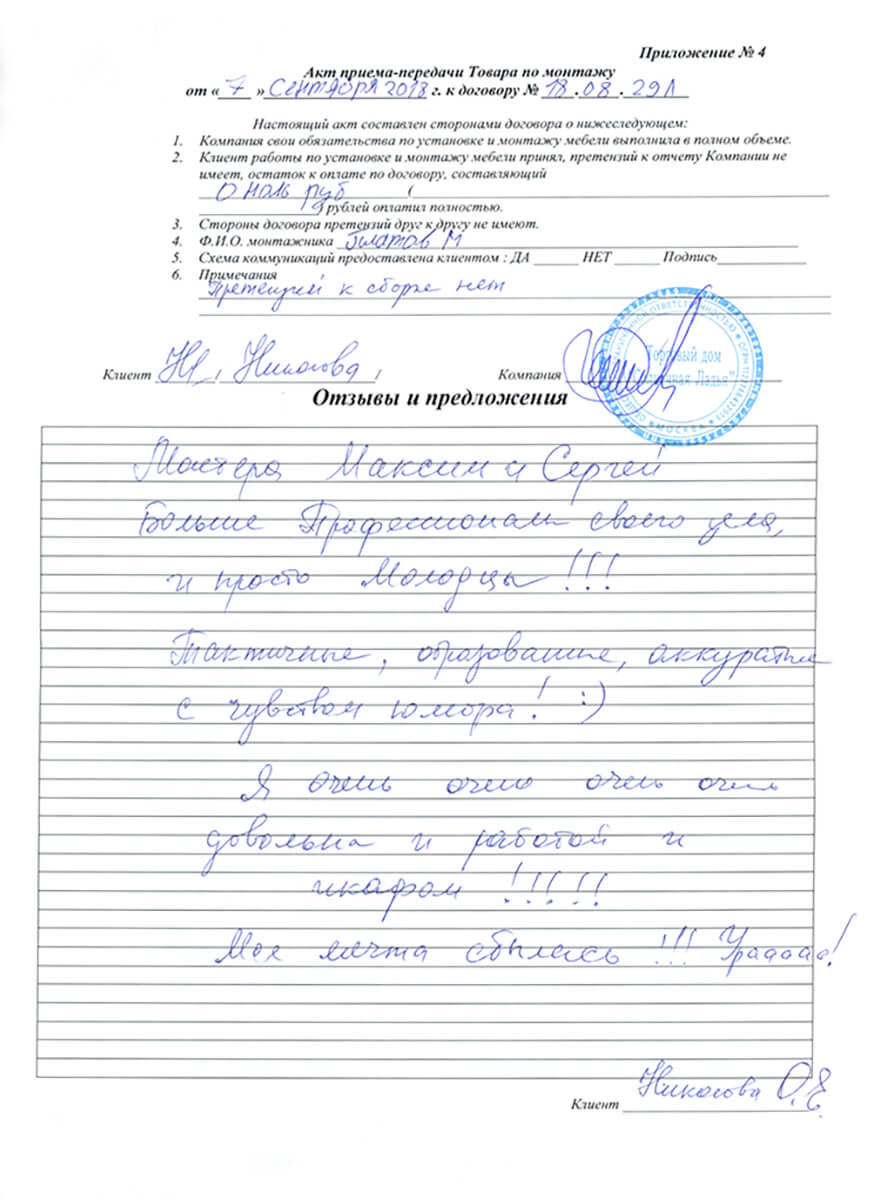 Приложение № 4
Акт приема-передачи Товара по монтажу
от « 7 » Сентября 2018 г. к договору № 18.08.29Л
Настоящий акт составлен сторонами договора о нижеследующем:
1. Компания свои обязательства по установке и монтажу мебели выполнила в полном объеме.
2. Клиент работы по установке и монтажу мебели принял, претензий к отчету Компании не
имеет, остаток к оплате по договору, составляющий
0 ноль руб (
) рублей оплатил полностью.
3. Стороны договора претензий друг к другу не имеют.
4. Ф.И.О. монтажника Платов М
5. Схема коммуникаций предоставлена клиентом : ДА ______ НЕТ ______ Подпись____________
6. Примечания
Претензий к сборке нет
Клиент / / Компания
Торговый дом
МОСКВА
Отзывы и предложения
Мастера Максим и Сергей
Больше Профессионалы своего дела,
и просто Молодцы!!!
Тактичные, образованные, аккуратные
с чувством юмора! :)
Я очень очень очень очень
довольна и работой и
шкафом !!!!!
Моя мечта сбылась !!! Ураааа!
Клиент О.Е.